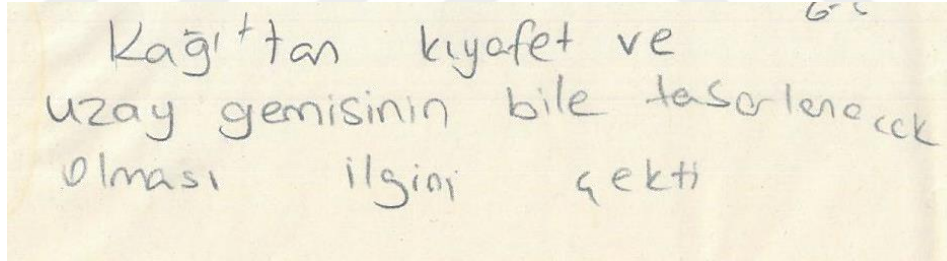 Kağıttan kıyafet ve
uzay gemisinin bile tasarlanacak
olması ilgimi çekti